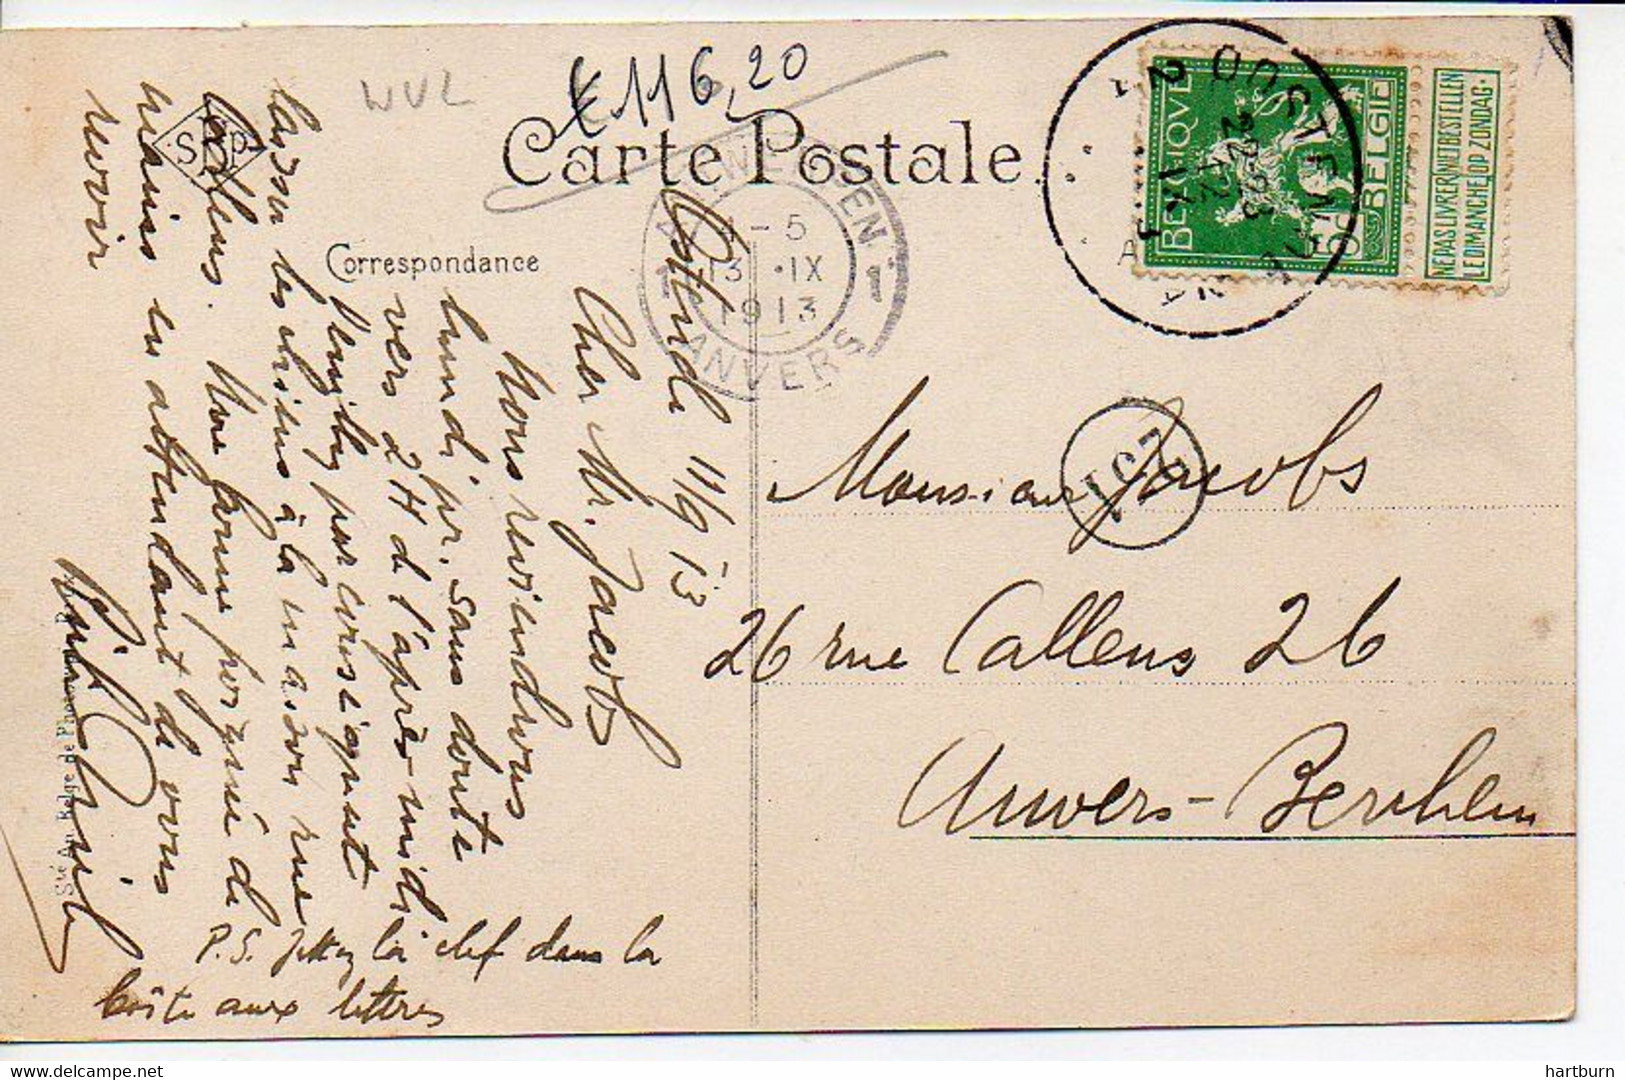 € 116,20
WVL
Carte Postale
Correspondance
Ostende 11/9 13
Cher Mr. Jacobs
Nous reviendrons
lundi pr. sans doute
vers 2 H de l'après-midi
Veuillez par conséquent
laisser les chiens à la maison rue
Callens. Une bonne poignée de
mains en attendant de vous
revoir
P.S. Jettez la clef dans la
boîte aux lettres
Monsieur Jacobs
26 rue Callens 26
Anvers-Berchem
ANTWERPEN
4-5
13 IX
1913
ANVERS
1
OOSTENDE
2
BELGIQUE
BELGIË
NE PAS LIVRER LE DIMANCHE
NIET BESTELLEN OP ZONDAG
Sté An. Belge de Phot
hartburn